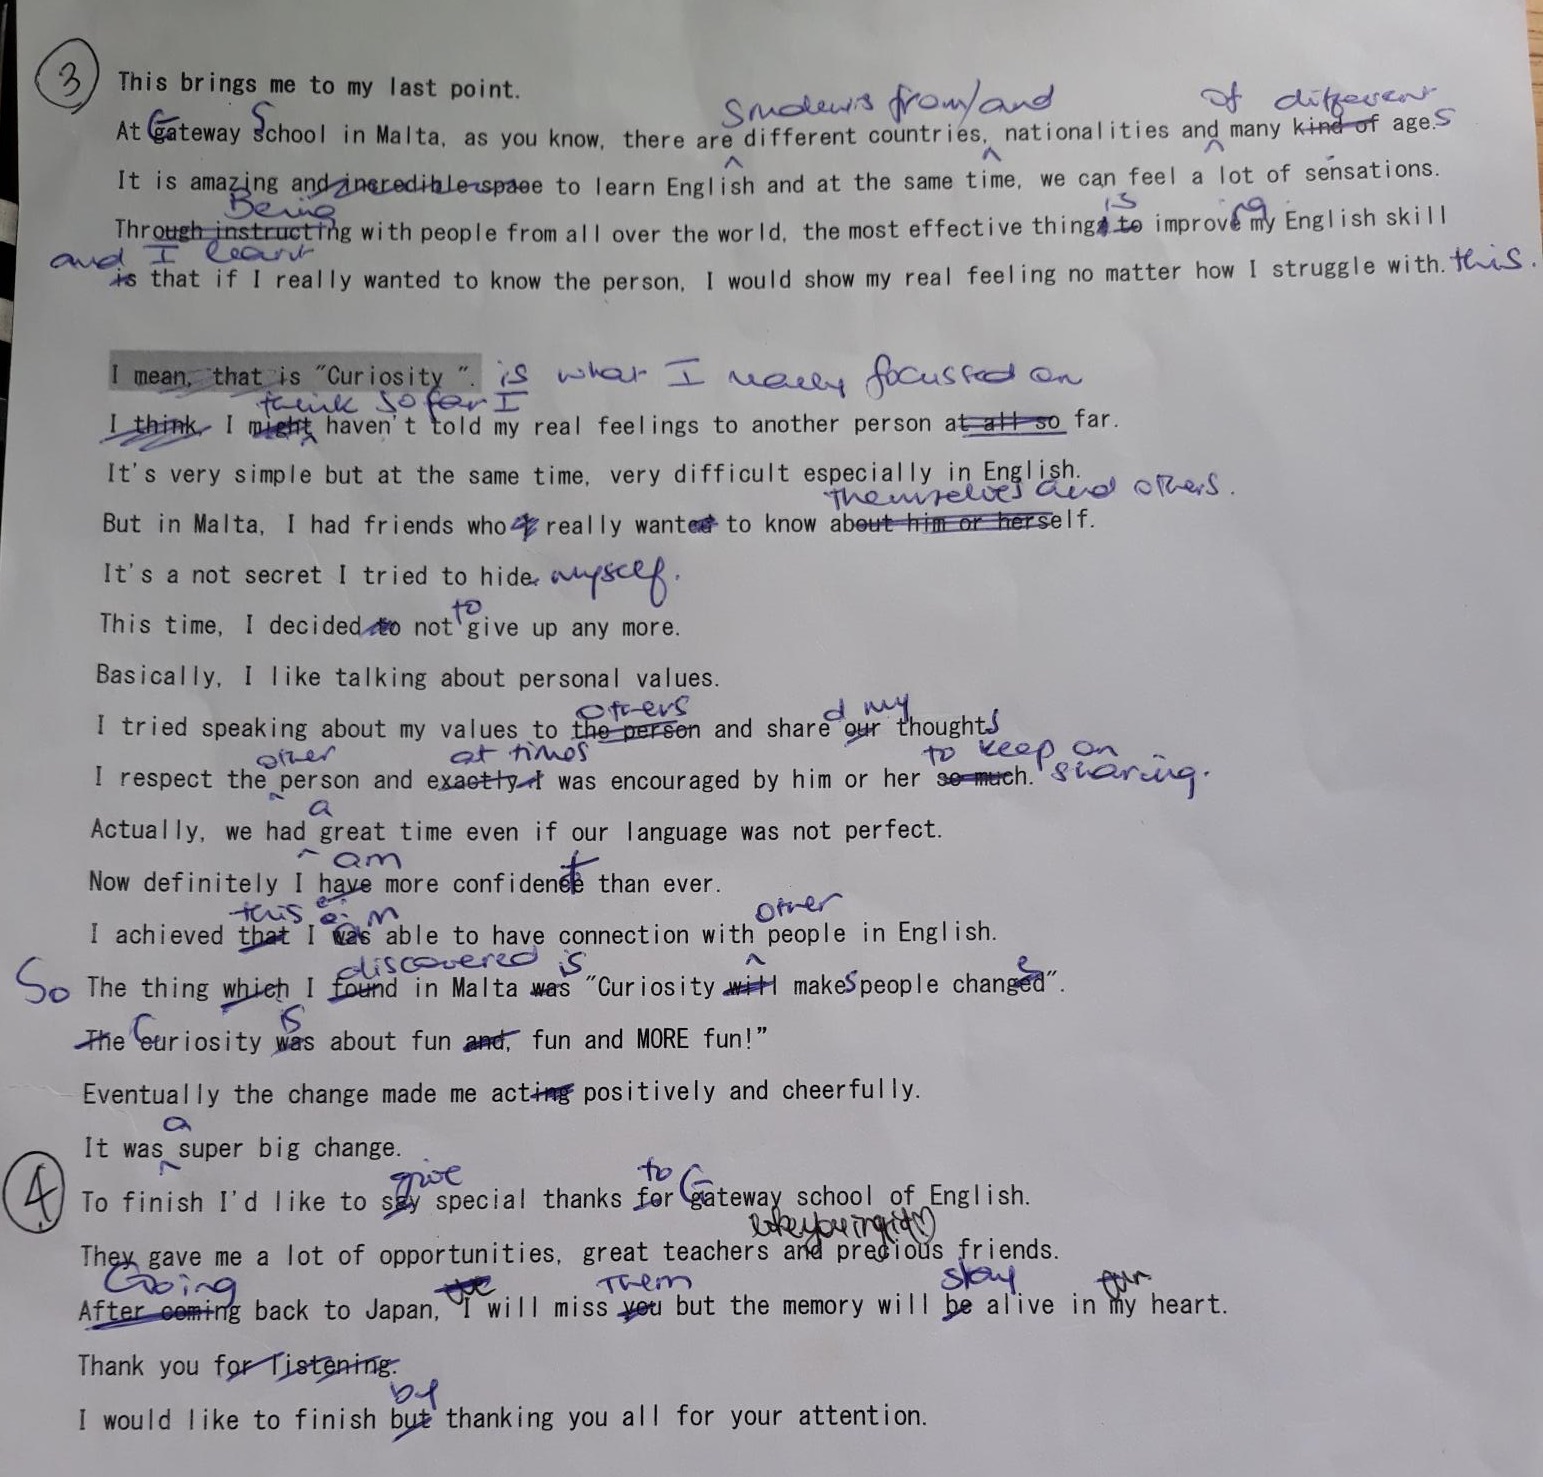 ③ This brings me to my last point.
Students from/and of different
At Gateway School in Malta, as you know, there are different countries, nationalities and many kind of ages
It is amazing and incredible space to learn English and at the same time, we can feel a lot of sensations.
Being is ng
Through instructing with people from all over the world, the most effective things to improve my English skill
and I learnt
is that if I really wanted to know the person, I would show my real feeling no matter how I struggle with. this.
I mean, that is "Curiosity ". is what I really focussed on
think so far I
I think, I might haven't told my real feelings to another person at all so far.
It's very simple but at the same time, very difficult especially in English.
themselves and others.
But in Malta, I had friends who really wanted to know about him or herself.
It's a not secret I tried to hide myself.
to
This time, I decided to not give up any more.
Basically, I like talking about personal values.
others d my
I tried speaking about my values to the person and share our thoughts
other at times to keep on
I respect the person and exactly I was encouraged by him or her so much. sharing.
a
Actually, we had great time even if our language was not perfect.
am t
Now definitely I have more confidence than ever.
this other
I achieved that I was able to have connection with people in English.
discovered is
So The thing which I found in Malta was "Curiosity will makes people changed".
is
The Curiosity was about fun and, fun and MORE fun!"
Eventually the change made me acting positively and cheerfully.
a
It was super big change.
give to
④ To finish I'd like to say special thanks for Gateway school of English.
They gave me a lot of opportunities, great teachers and precious friends.
Going Them stay our
After coming back to Japan, I will miss you but the memory will be alive in my heart.
Thank you for listening.
by
I would like to finish but thanking you all for your attention.